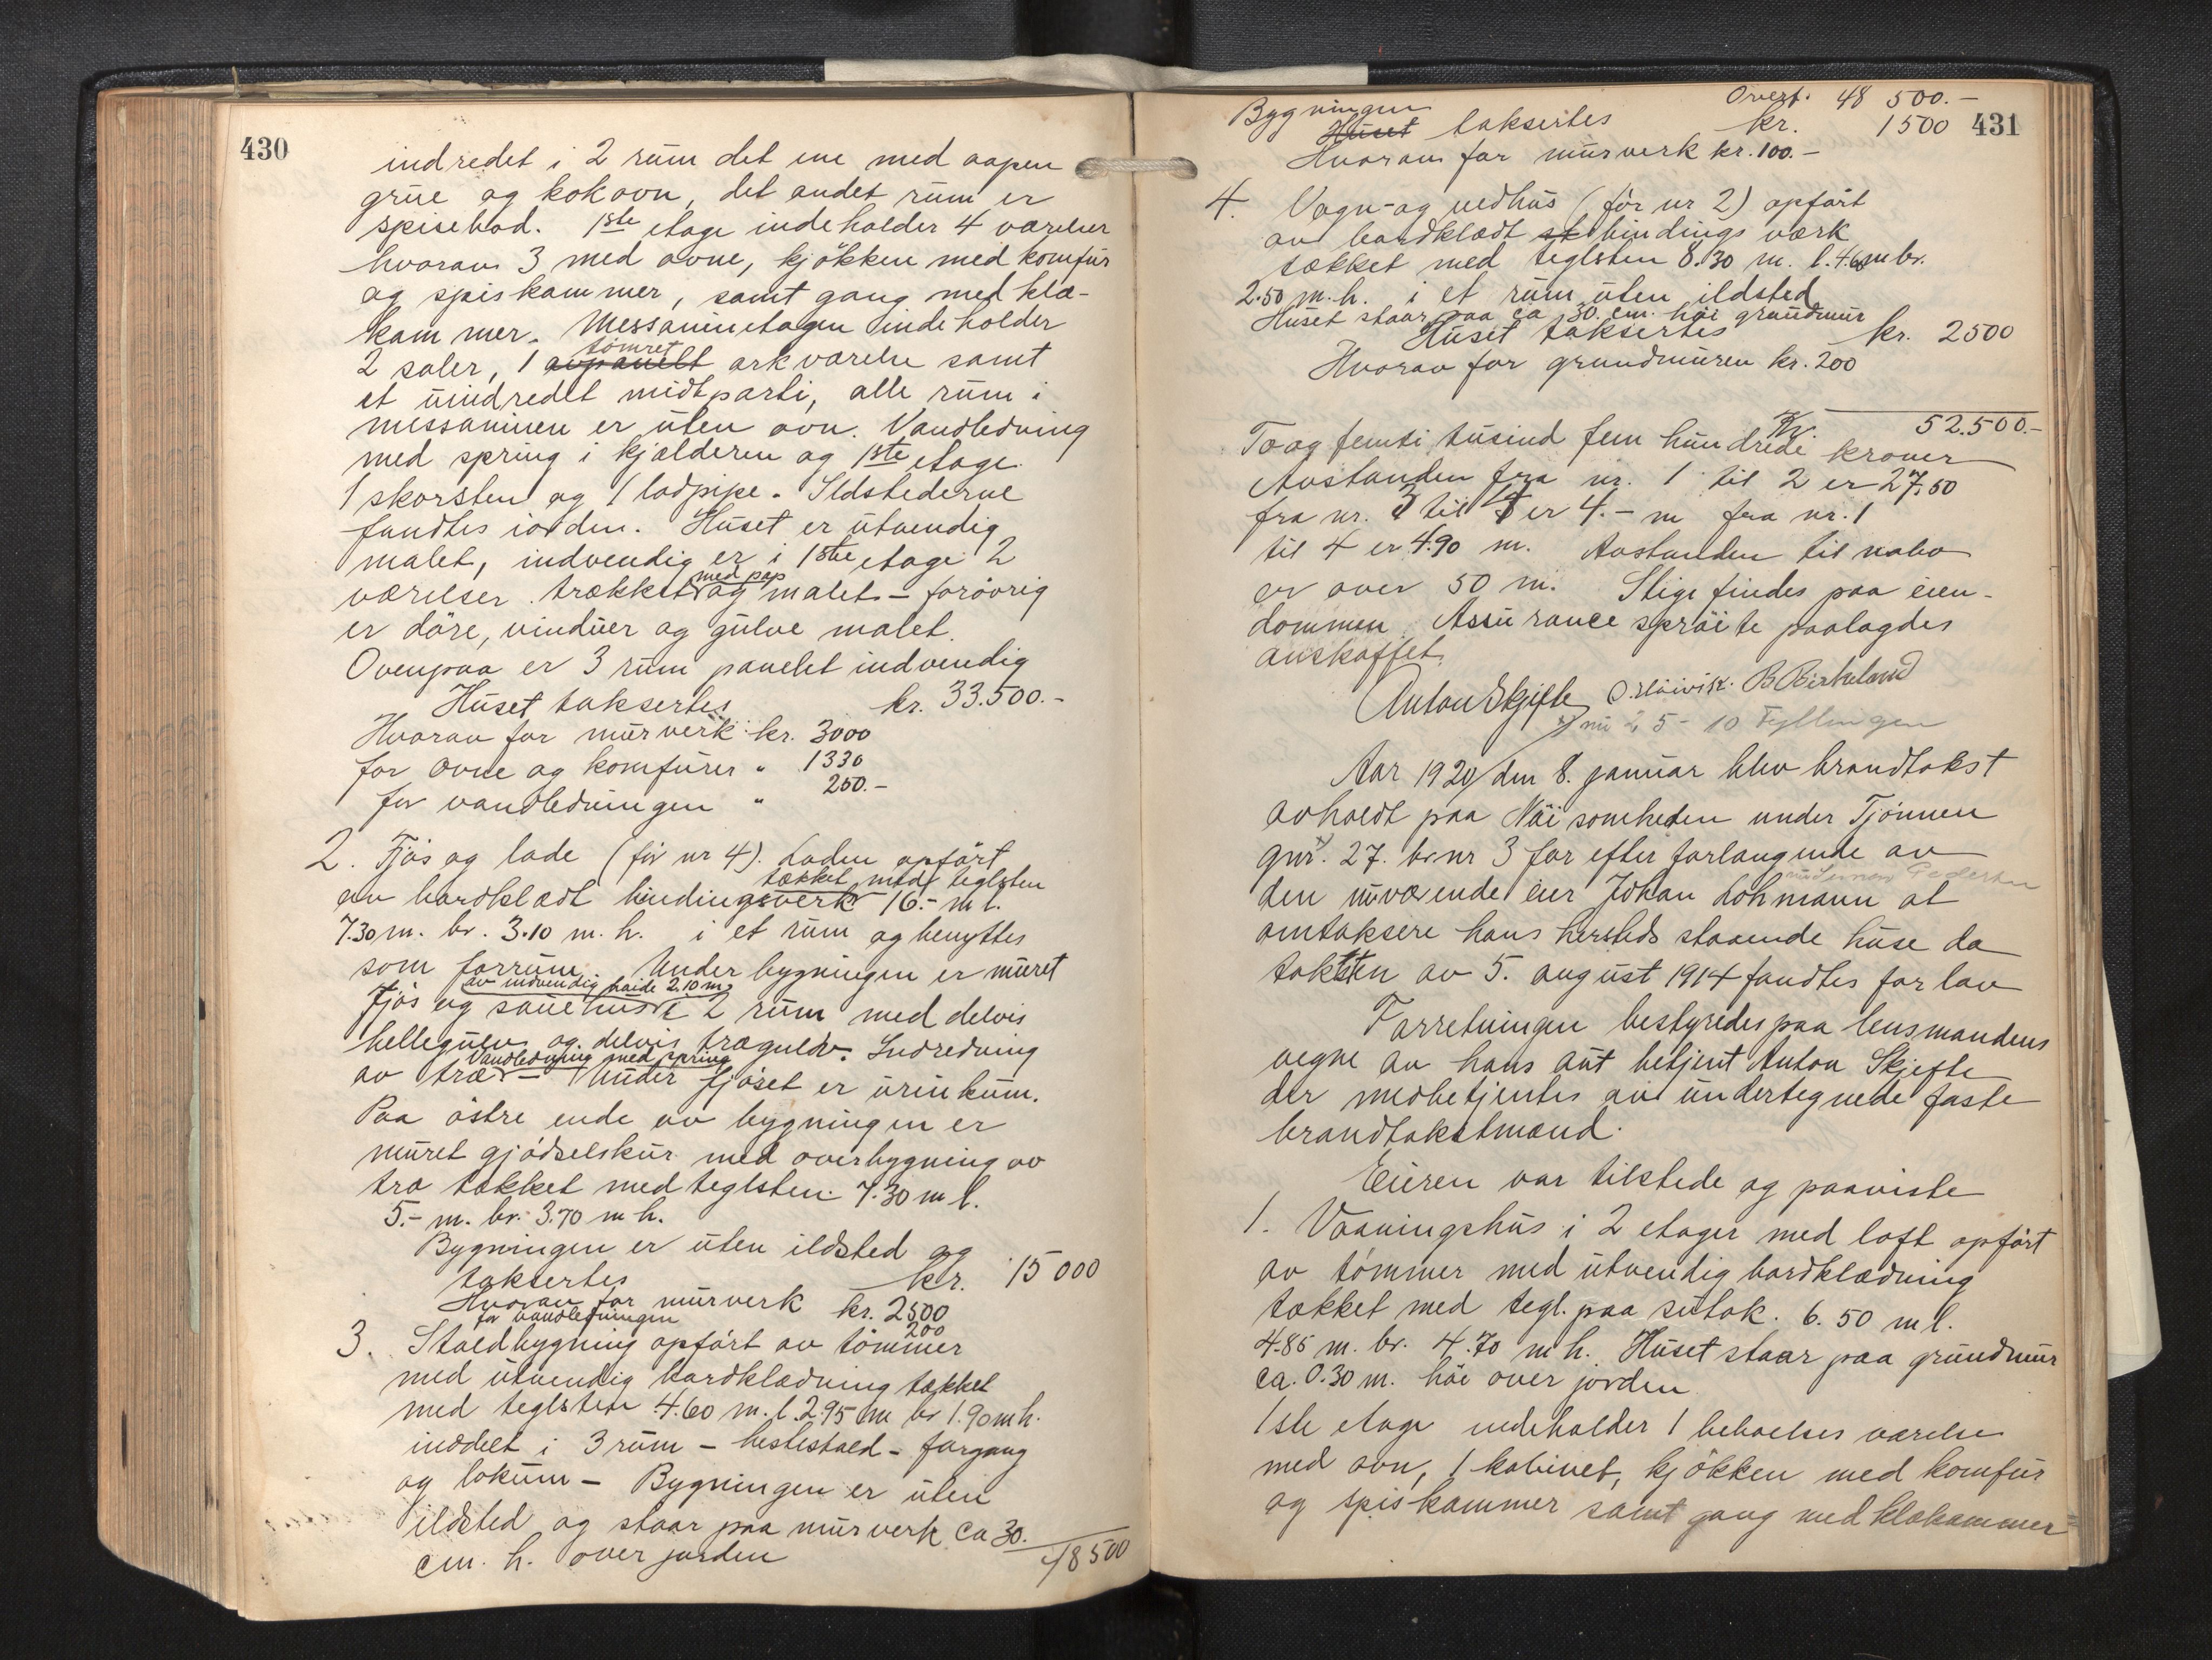 430
indredet i 2 rum det ene med aapen
grue og kokovn, det andet rum er
spisebod. 1ste etage indeholder 4 værelser
hvorav 3 med ovne, kjökken med komfur
og spiskammer, samt gang med klæ-
kammer. Messaninetagen indeholder
tömret
2 saler, 1 avpanelt arkværelse samt
et uindredet midtparti, alle rum i
messaninen er uten ovn. Vandledning
med spring i kjælderen og 1ste etage
1 skorsten og 1 lodpipe. Ildstederne
fandtes iorden. Huset er utvendig
malet, indvendig er i 1ste etage 2
med pap
værelser trækket og malet – forövrig
er döre, vinduer og gulve malet.
Ovenpaa er 3 rum panelet indvendig
Huset taksertes kr. 33.500.-
Hvorav for murverk kr. 3000
for ovne og komfurer " 1330
for vandledningen " 250.-
2. Fjös og lade (för nr 4). Laden opfört
tækket med teglsten
av bordklædt bindingsverk 16.- m l.
7.30 m. br. 3.10 m. h. i et rum og benyttes
som forrum. Under bygningen er muret
av indvendig höide 2.10 m.
fjös og sauehus i 2 rum med delvis
hellegulv og delvis trægulv. Indredning
Vandledning med spring
av træ – Under fjöset er urinkum.
Paa östre ende av bygningen er
muret gjödselskur med overbygning av
træ tækket med teglsten 7.30 m l.
5.- m. br. 3.70 m h.
Bygningen er uten ildsted og
taksertes kr. 15 000
Hvorav for murverk kr. 2500
for vandledningen 200
3. Staldbygning opfört av tömmer
med utvendig bordklædning tækket
med teglsten 4.60 m. l. 2.95 m br 1.90 m h.
inddelt i 3 rum – hestestald – forgang
og lokum – Bygningen er uten
ildsted og staar paa murverk ca 30.
cm. h. over jorden 48 500
Overf. 48 500.-
Bygningen
Huset taksertes kr. 1500 431
Hvorav for murverk kr. 100.-
4. Vogn- og vedhus (för nr 2) opfört
av bordklædt st bindingsværk
tækket med teglsten 8.30 m. l. 4.60 m br.
2.50 m. h. i et rum uten ildsted
Huset staar paa ca 30. cm. höi grundmur
Huset taksertes kr. 2500
Hvorav for grundmuren kr. 200
Kr. 52.500.-
To og femti tusind fem hundrede kroner
Avstanden fra nr. 1 til 2 er 27.50
fra nr. 3 til 4 er 4.- m fra nr. 1
til 4 er 4.90 m. Avstanden til nabo
er over 50 m. Stige findes paa eien-
dommen. Assurance spröite paalagdes
anskaffet.
Anton Skjefte B Birkeland
x) nu 25 - 10 Fyllingen
Aar 1920 den 8. januar blev brandtakst
avholdt paa Nöisomheden under Tjönnen
gnr. 27. br nr 3 for efter forlangende av
den nuværende eier Johan Lohmann at
omtaksere hans hersteds staaende huse da
taksten av 5. august 1914 fandtes for lav
Forretningen bestyredes paa lensmandens
vegne av hans aut betjent Anton Skjefte
der medbetjentes av undertegnede faste
brandtakstmænd.
Eieren var tilstede og paaviste
1. Vaaningshus i 2 etager med loft opfört
av tömmer med utvendig bordklædning
tækket med tegl. paa sutak. 6.50 m l.
4.85 m. br. 4.70 m h. Huset staar paa grundmur
ca. 0.30 m. höi over jorden
1ste etage indeholder 1 beboelses værelse
med ovn, 1 kabinet, kjökken med komfur
og spiskammer samt gang med klækammer